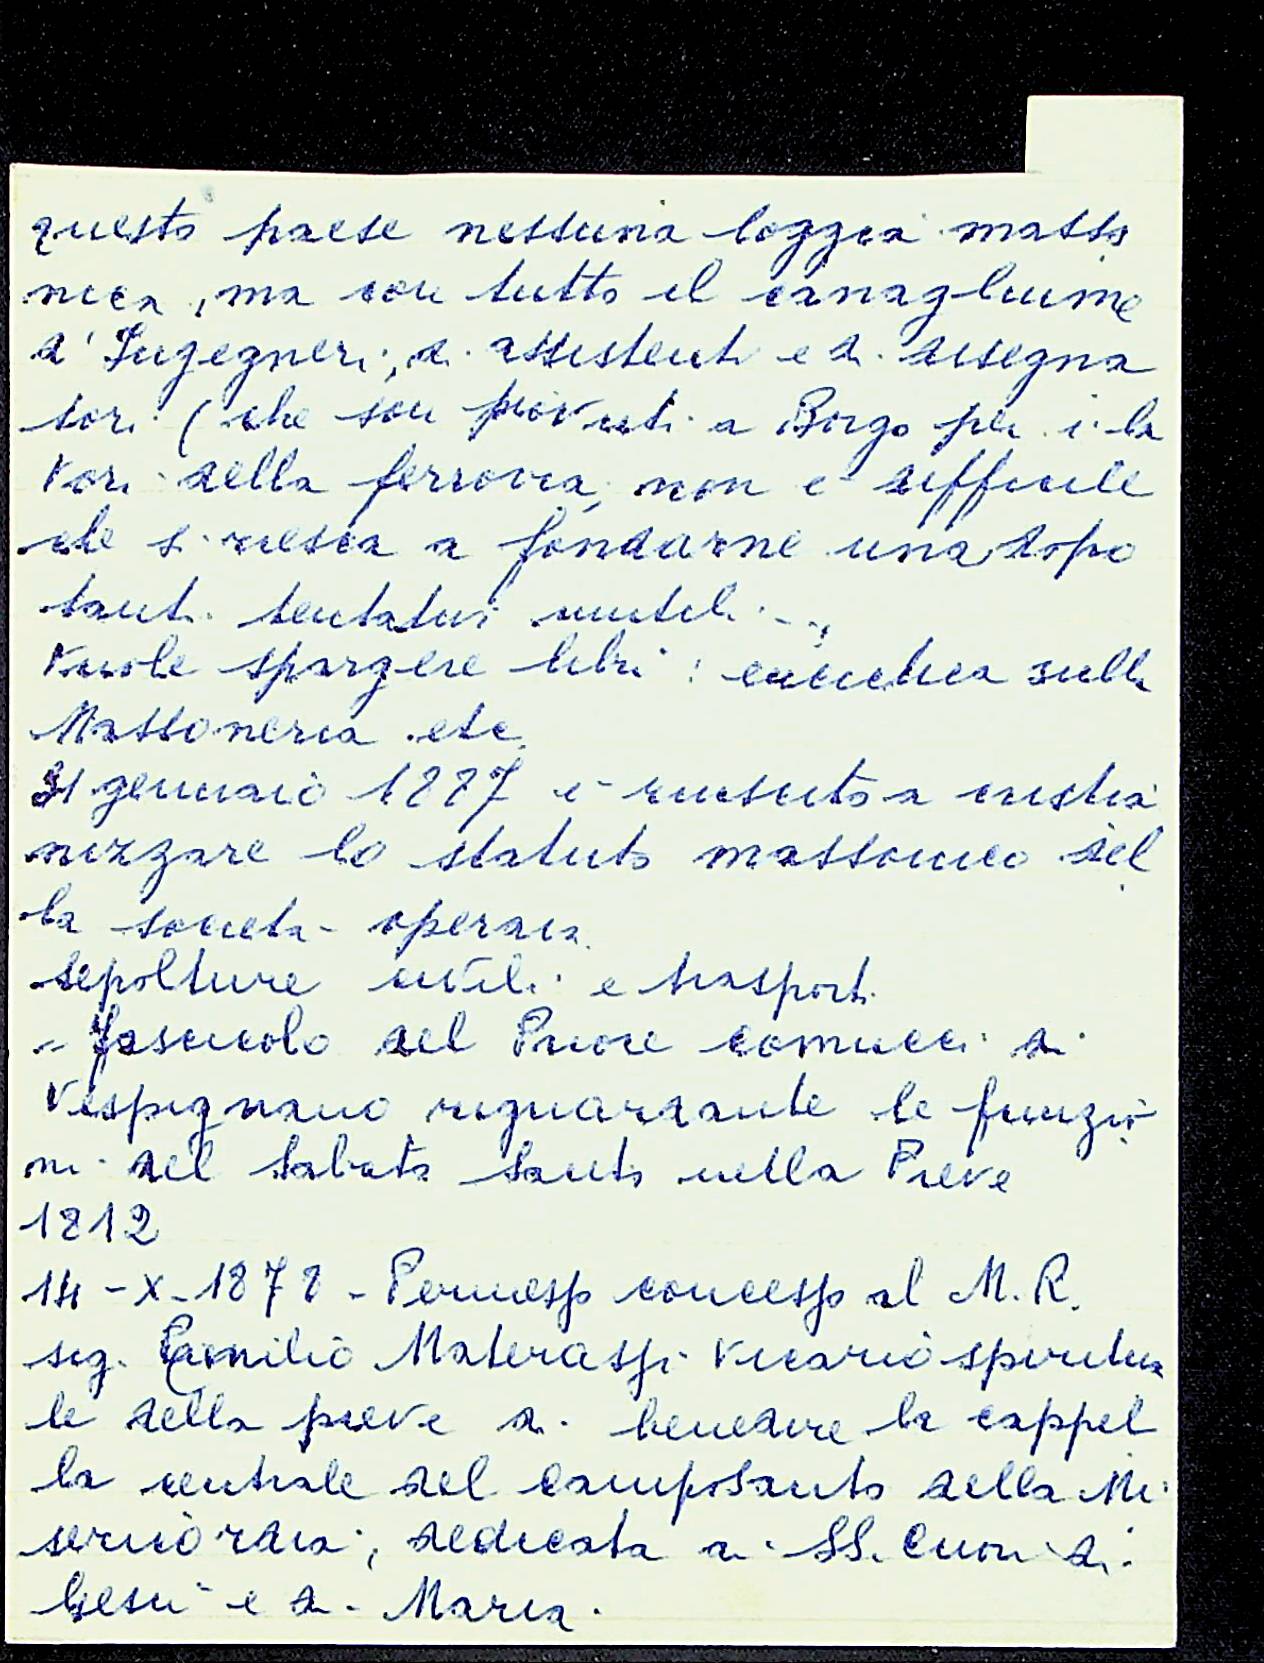 questo paese nessuna loggia masso
nica, ma con tutto il canagliume
d'Ingegneri, di assistenti e di disegna
tori (che son piovuti a Borgo per i la
vori della ferrovia, non è difficile
che si riesca a fondarne una dopo
tanti tentativi inutili...
Vuole spargere libri: enciclica sulla
Massoneria etc.
31 gennaio 1887 è riuscito a cristia
nizzare lo statuto massonico del
la società operaia.
sepolture civili e trasporti.
- fascicolo del Priore Comucci di
Vespignano riguardante le funzio
ni del Sabato Santo nella Pieve
1812
14-X-1878 - Permesso concesso al M. R.
sig. Emilio Materassi Vicario spiritua
le della pieve di benedire la cappel
la centrale del Camposanto della Mi
sericordia, dedicata ai SS. Cuori di
Gesù e di Maria.